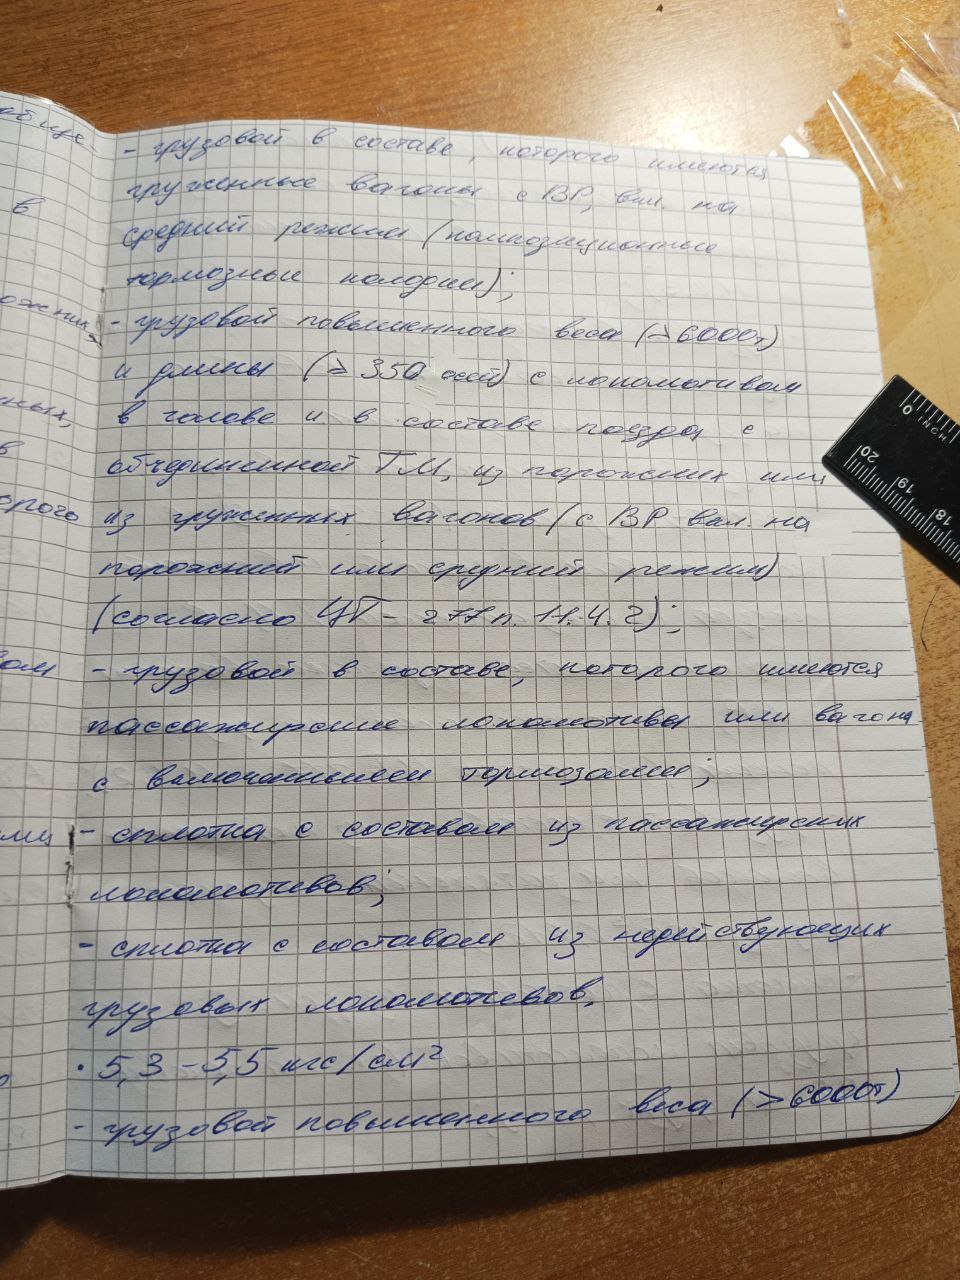 - грузовой в составе, которого имеются
груженные вагоны с ВР, вкл. на
средний режим (композиционные
тормозные колодки);
- грузовой повышенного веса (>6000т)
и длины (≥ 350 осей) с локомотивом
в голове и в составе поезда с
объединенной ТМ, из порожних или
из груженных вагонов (с ВР вкл. на
порожний или средний режим)
(согласно ЦТ- 277 п. 11.4.2);
- грузовой в составе, которого имеются
пассажирские локомотивы или вагоны
с включенными тормозами;
- сплотка с составом из пассажирских
локомотивов;
- сплотка с составом из недействующих
грузовых локомотивов.
• 5,3 - 5,5 кгс/см²
- грузовой повышенного веса (>6000т)
в
ных,
в
орого
0
20
19
18